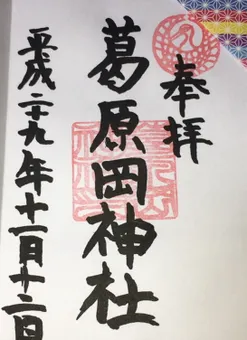 奉拝
葛原岡神社
平成二十九年十一月十二日